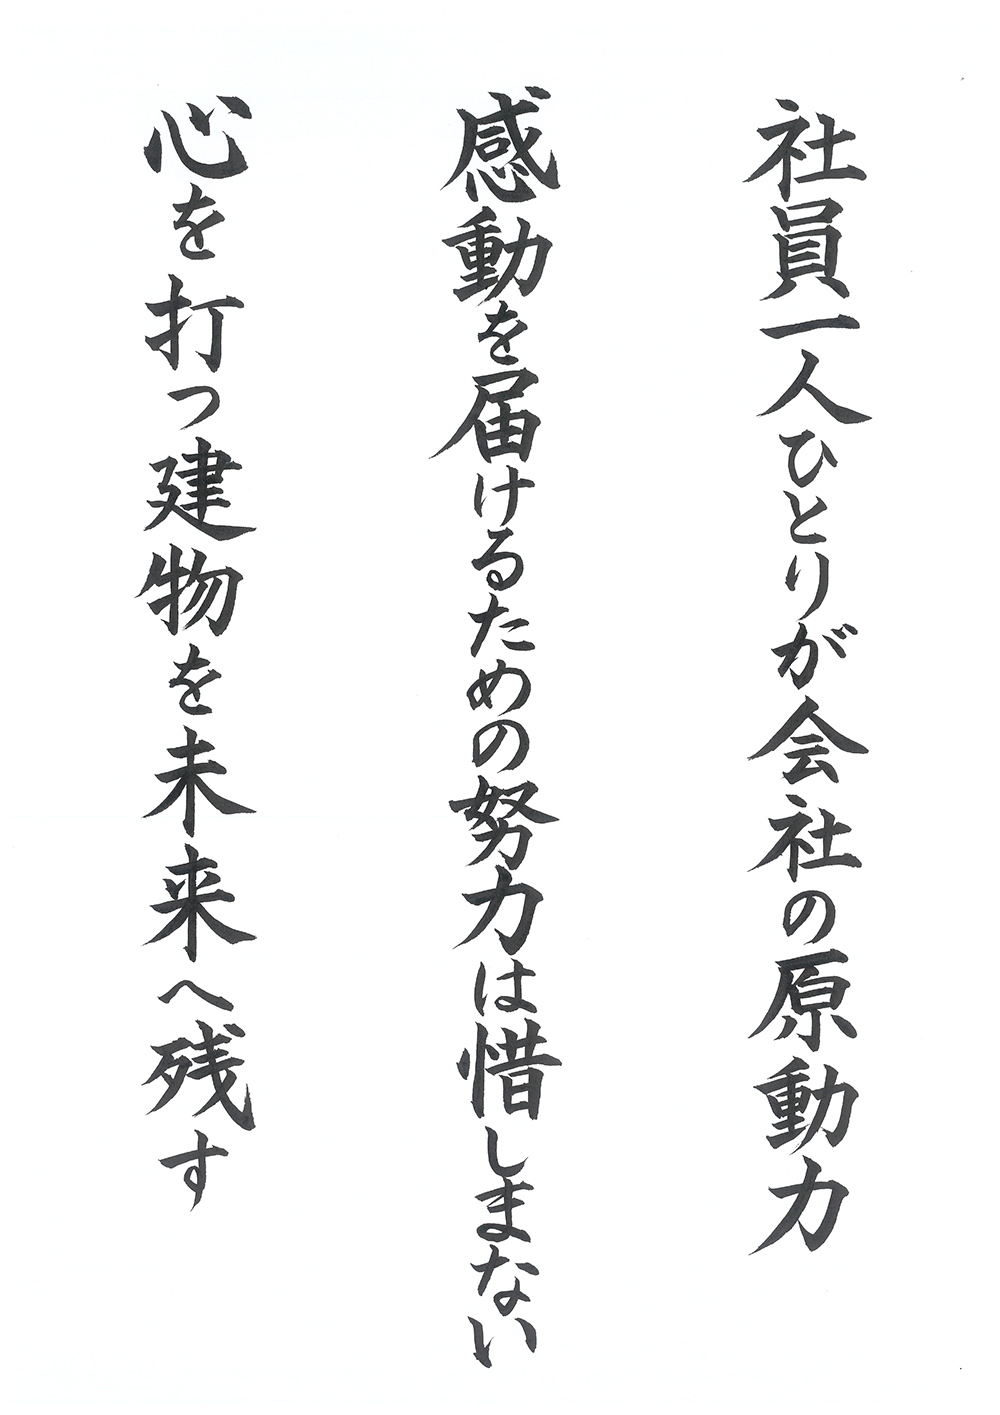 社員一人ひとりが会社の原動力
感動を届けるための努力は惜しまない
心を打つ建物を未来へ残す